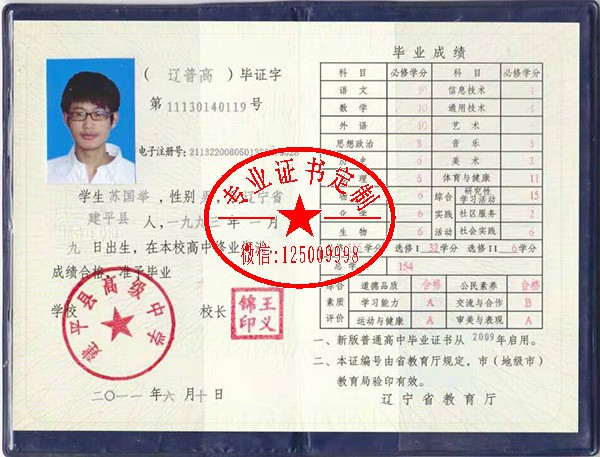 （辽普高）毕证字
第 11130140119 号
电子注册号:
学生 苏国举，性别
辽宁省
建平县 人，一九九三年 一 月
九 日出生，在本校高中修业
成绩合格，准予毕业
学校
校长
建平县高级中学
王义锦印
二〇一一年六月十日
专业证书定制
微信:125009998
毕业成绩
科目 必修学分 科目 必修学分
语文 信息技术
数学 10 通用技术
外语 10 艺术
思想政治 8 音乐
美术 3
体育与健康 11
综合实践活动
研究性学习活动 15
化学 6 社区服务 2
生物 6 社会实践 6
选修I 32学分 选修II 6学分
154
综合素质评价
道德品质 合格 公民素养 合格
学习能力 A 交流与合作 B
运动与健康 A 审美与表现 A
一、新版普通高中毕业证书从 2009年启用。
二、本证编号由省教育厅规定，市（地级市）
教育局验印有效。
辽宁省教育厅